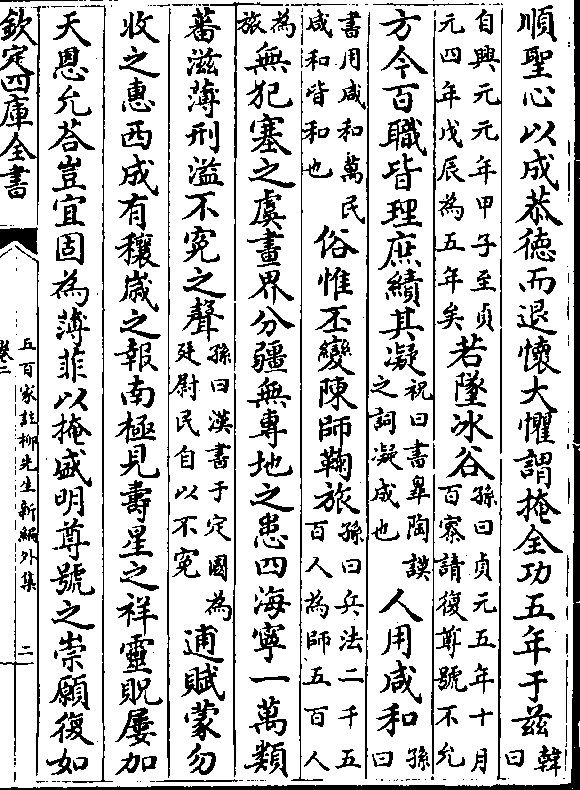 順聖心以成恭德而退懷大懼謂掩全功五年于兹韓曰
自興元元年甲子至貞
元四年戊辰為五年矣
若墜冰谷
孫曰貞元五年十月
百寮請復尊號不允
方今百職皆理庶績其凝
祝曰書臯陶謨
之詞凝成也
人用咸和孫曰
書用咸和萬民
咸和皆和也
俗惟丕變陳師鞠旅
孫曰兵法二千五
百人為師五百人
為旅無犯塞之虞畫界分疆無專地之患四海寧一萬類
蕃滋薄刑溢不寃之聲
孫曰漢書于定國為
廷尉民自以不寃
逋賦蒙勿
收之惠西成有穰歲之報南極見壽星之祥靈貺屢加
天恩允荅豈宜固為薄菲以掩盛明尊號之崇願復如
欽定四庫全書
五百家註柳先生新編外集
卷二
二